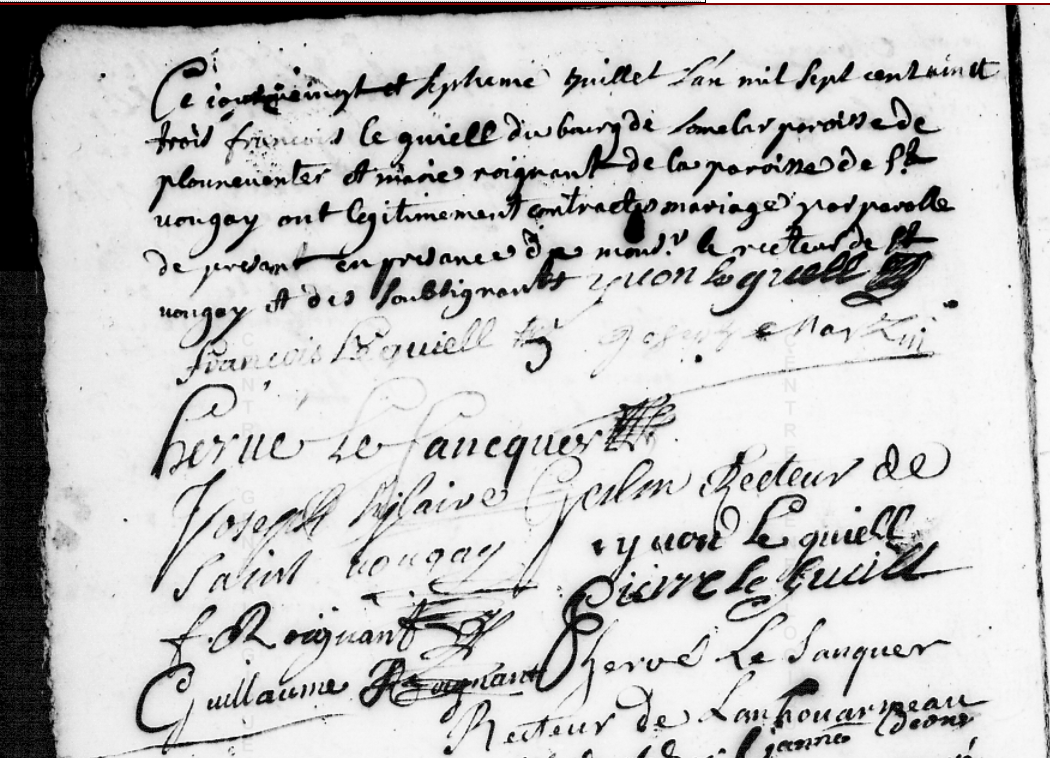 Ce jour veingt et septieme Juillet L'an mil sept cent vinct
trois francois le guiell du bourg de Lomelar paroisse de
plouneventer et marie roignant de la paroisse de St
vougay ont legitimement contractes mariage par parolle
de presant en presance de monsr le recteur de St
vougay et des soubsignants yuon Le guiell
francois Le guiell
herué Le Sancquer
Joseph hilaire Recteur de
Saint vougay yuon Le guiell
Pierre le guiell
f Roignant
Guillaume Roignant hervé Le Sanquer
Recteur de Lanhouarneau